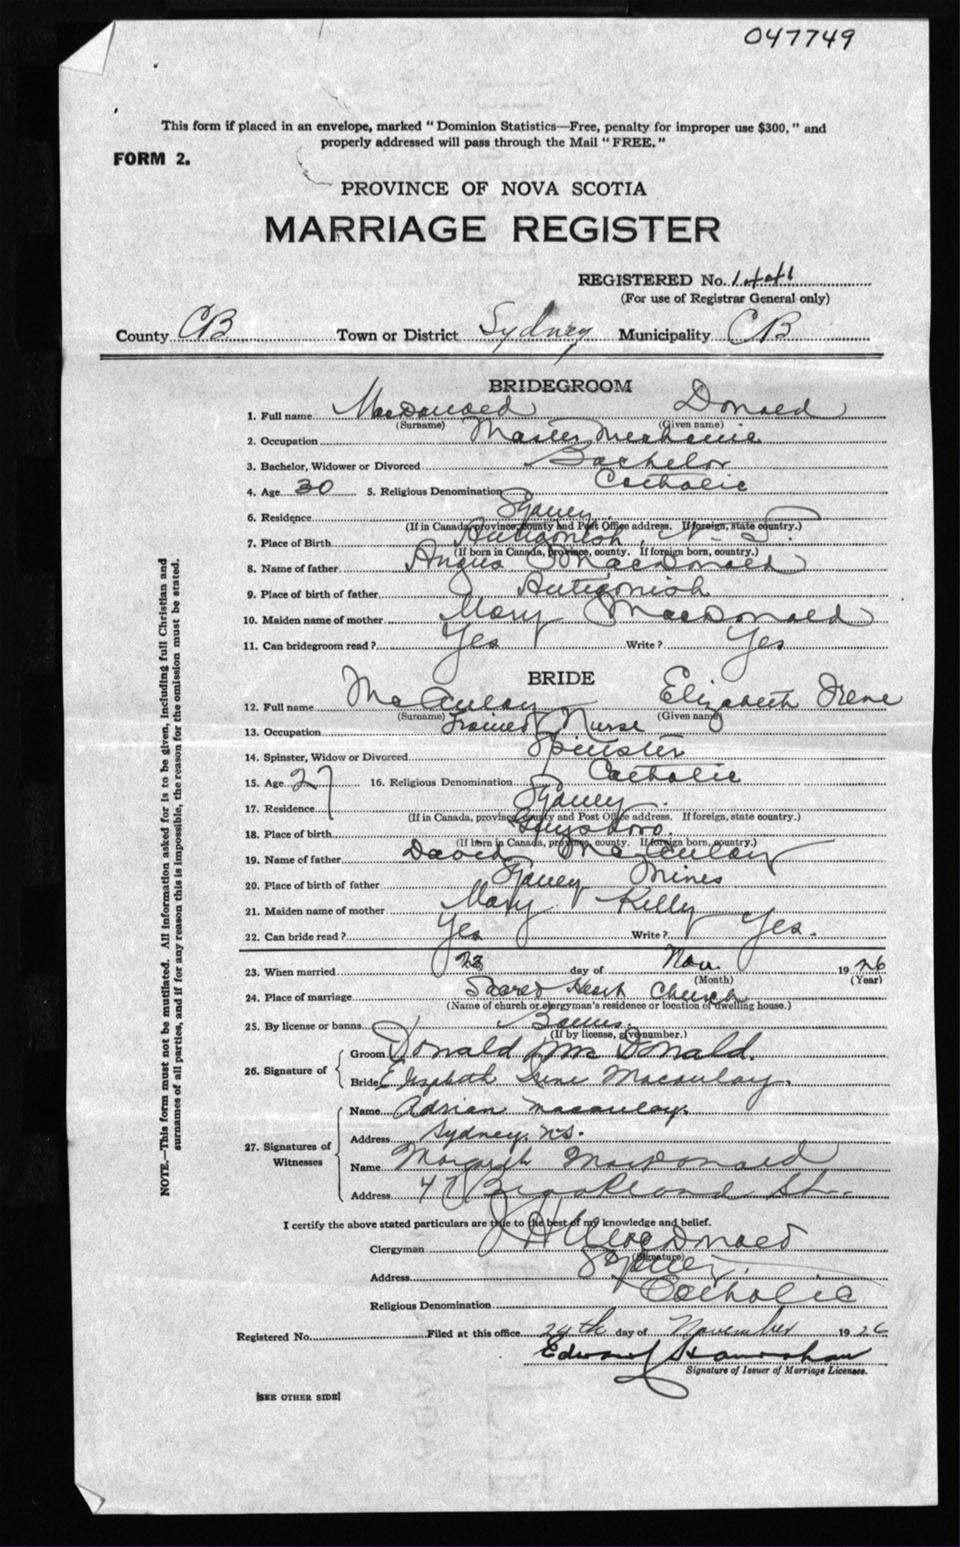 047749
This form if placed in an envelope, marked "Dominion Statistics—Free, penalty for improper use $300," and
properly addressed will pass through the Mail "FREE."
FORM 2.
PROVINCE OF NOVA SCOTIA
MARRIAGE REGISTER
REGISTERED No.
(For use of Registrar General only)
County CB Town or District Sydney Municipality CB
BRIDEGROOM
1. Full name MacDonald Donald
(Surname) (Given name)
2. Occupation Master Mechanic
3. Bachelor, Widower or Divorced Bachelor
4. Age 30 5. Religious Denomination Catholic
6. Residence Sydney
(If in Canada, province, county and Post Office address. If foreign, state country.)
7. Place of Birth Antigonish, N.S.
(If born in Canada, province, county. If foreign born, country.)
8. Name of father Angus MacDonald
9. Place of birth of father Antigonish
10. Maiden name of mother Mary MacDonald
11. Can bridegroom read? Yes Write? Yes
BRIDE
12. Full name McAulay Elizabeth Irene
(Surname) (Given name)
13. Occupation Trained Nurse
14. Spinster, Widow or Divorced Spinster
15. Age 27 16. Religious Denomination Catholic
17. Residence Sydney
(If in Canada, province, county and Post Office address. If foreign, state country.)
18. Place of birth Guysboro.
(If born in Canada, province, county. If foreign born, country.)
19. Name of father David McAulay
20. Place of birth of father Sydney Mines
21. Maiden name of mother Mary Kelly
22. Can bride read? Yes Write? Yes.
23. When married 23 day of Nov. 1926
(Month) (Year)
24. Place of marriage Sacred Heart Church
(Name of church or clergyman's residence or location of dwelling house.)
25. By license or banns Banns.
(If by license, give number.)
26. Signature of
Groom Donald McDonald.
Bride Elizabeth Irene Macaulay.
27. Signatures of Witnesses
Name Adrian Macaulay.
Address Sydney, N.S.
Name Margaret MacDonald
Address 47 Brookland St.
I certify the above stated particulars are true to the best of my knowledge and belief.
Clergyman MacDonald
(Signature)
Address Sydney.
Religious Denomination Catholic
Registered No. Filed at this office 24th day of November 1926
Edward
Signature of Issuer of Marriage Licenses.
[SEE OTHER SIDE]
NOTE.—This form must not be mutilated. All information asked for is to be given, including full Christian and
surnames of all parties, and if for any reason this is impossible, the reason for the omission must be stated.